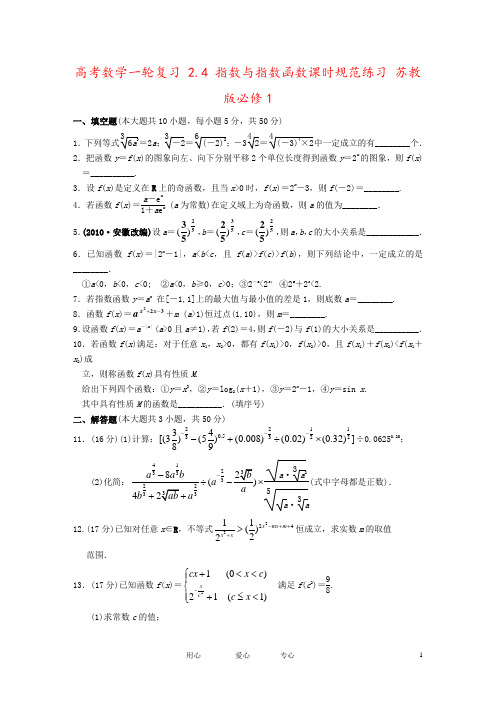 高考数学一轮复习 2.4 指数与指数函数课时规范练习 苏教
版必修1
一、填空题(本大题共10小题，每小题5分，共50分)
1．下列等式∛(6a³)＝2a；∛(－2)＝⁶√((－2)²)；－3⁴√2＝⁴√((－3)⁴×2)中一定成立的有________个．
2．把函数y＝f(x)的图象向左、向下分别平移2个单位长度得到函数y＝2ˣ的图象，则f(x)
＝__________.
3．设f(x)是定义在R上的奇函数，且当x>0时，f(x)＝2ˣ－3，则f(－2)＝________.
4．若函数f(x)＝(a－eˣ)/(1＋aeˣ) (a为常数)在定义域上为奇函数，则a的值为________．
5．(2010·安徽改编)设a＝(3/5)^(2/5)，b＝(2/5)^(3/5)，c＝(2/5)^(2/5)，则a，b，c的大小关系是____________．
6．已知函数f(x)＝|2ˣ－1|，a<b<c，且f(a)>f(c)>f(b)，则下列结论中，一定成立的是
________．
①a<0，b<0，c<0； ②a<0，b≥0，c>0；③2⁻ᵃ<2ᶜ； ④2ᵃ＋2ᶜ<2.
7．若指数函数y＝aˣ 在[－1,1]上的最大值与最小值的差是1，则底数a＝________.
8．函数f(x)＝a^(x²+2x−3)＋m (a>1)恒过点(1,10)，则m＝________.
9．设函数f(x)＝a^(－|x|) (a>0且a≠1)，若f(2)＝4，则f(－2)与f(1)的大小关系是__________．
10．若函数f(x)满足：对于任意x₁，x₂>0，都有f(x₁)>0，f(x₂)>0，且f(x₁)＋f(x₂)<f(x₁＋
x₂)成
立，则称函数f(x)具有性质M.
给出下列四个函数：①y＝x³，②y＝log₂(x＋1)，③y＝2ˣ－1，④y＝sin x.
其中具有性质M的函数是__________．(填序号)
二、解答题(本大题共3小题，共50分)
11．(16分)(1)计算：[(3 3/8)^(−2/3)−(5 4/9)^0.5+(0.008)^(−2/3)÷(0.02)^(−1/2)×(0.32)^(1/2)]÷0.0625^0.25；
(2)化简：(a^(4/3)−8a^(1/3)b)/(4b^(2/3)+2∛(ab)+a^(2/3))÷(a^(−2/3)−2∛b/a)×√(a·∛(a²))/⁵√(a·∛a)(式中字母都是正数)．
12．(17分)已知对任意x∈R，不等式1/2^(x²+x)>(1/2)^(2x²−mx+m+4)恒成立，求实数m的取值
范围．
13．(17分)已知函数f(x)＝{cx+1 (0<x<c)；2^(−x/c²)+1 (c≤x<1)} 满足f(c²)＝9/8.
(1)求常数c的值；
用心 爱心 专心 1